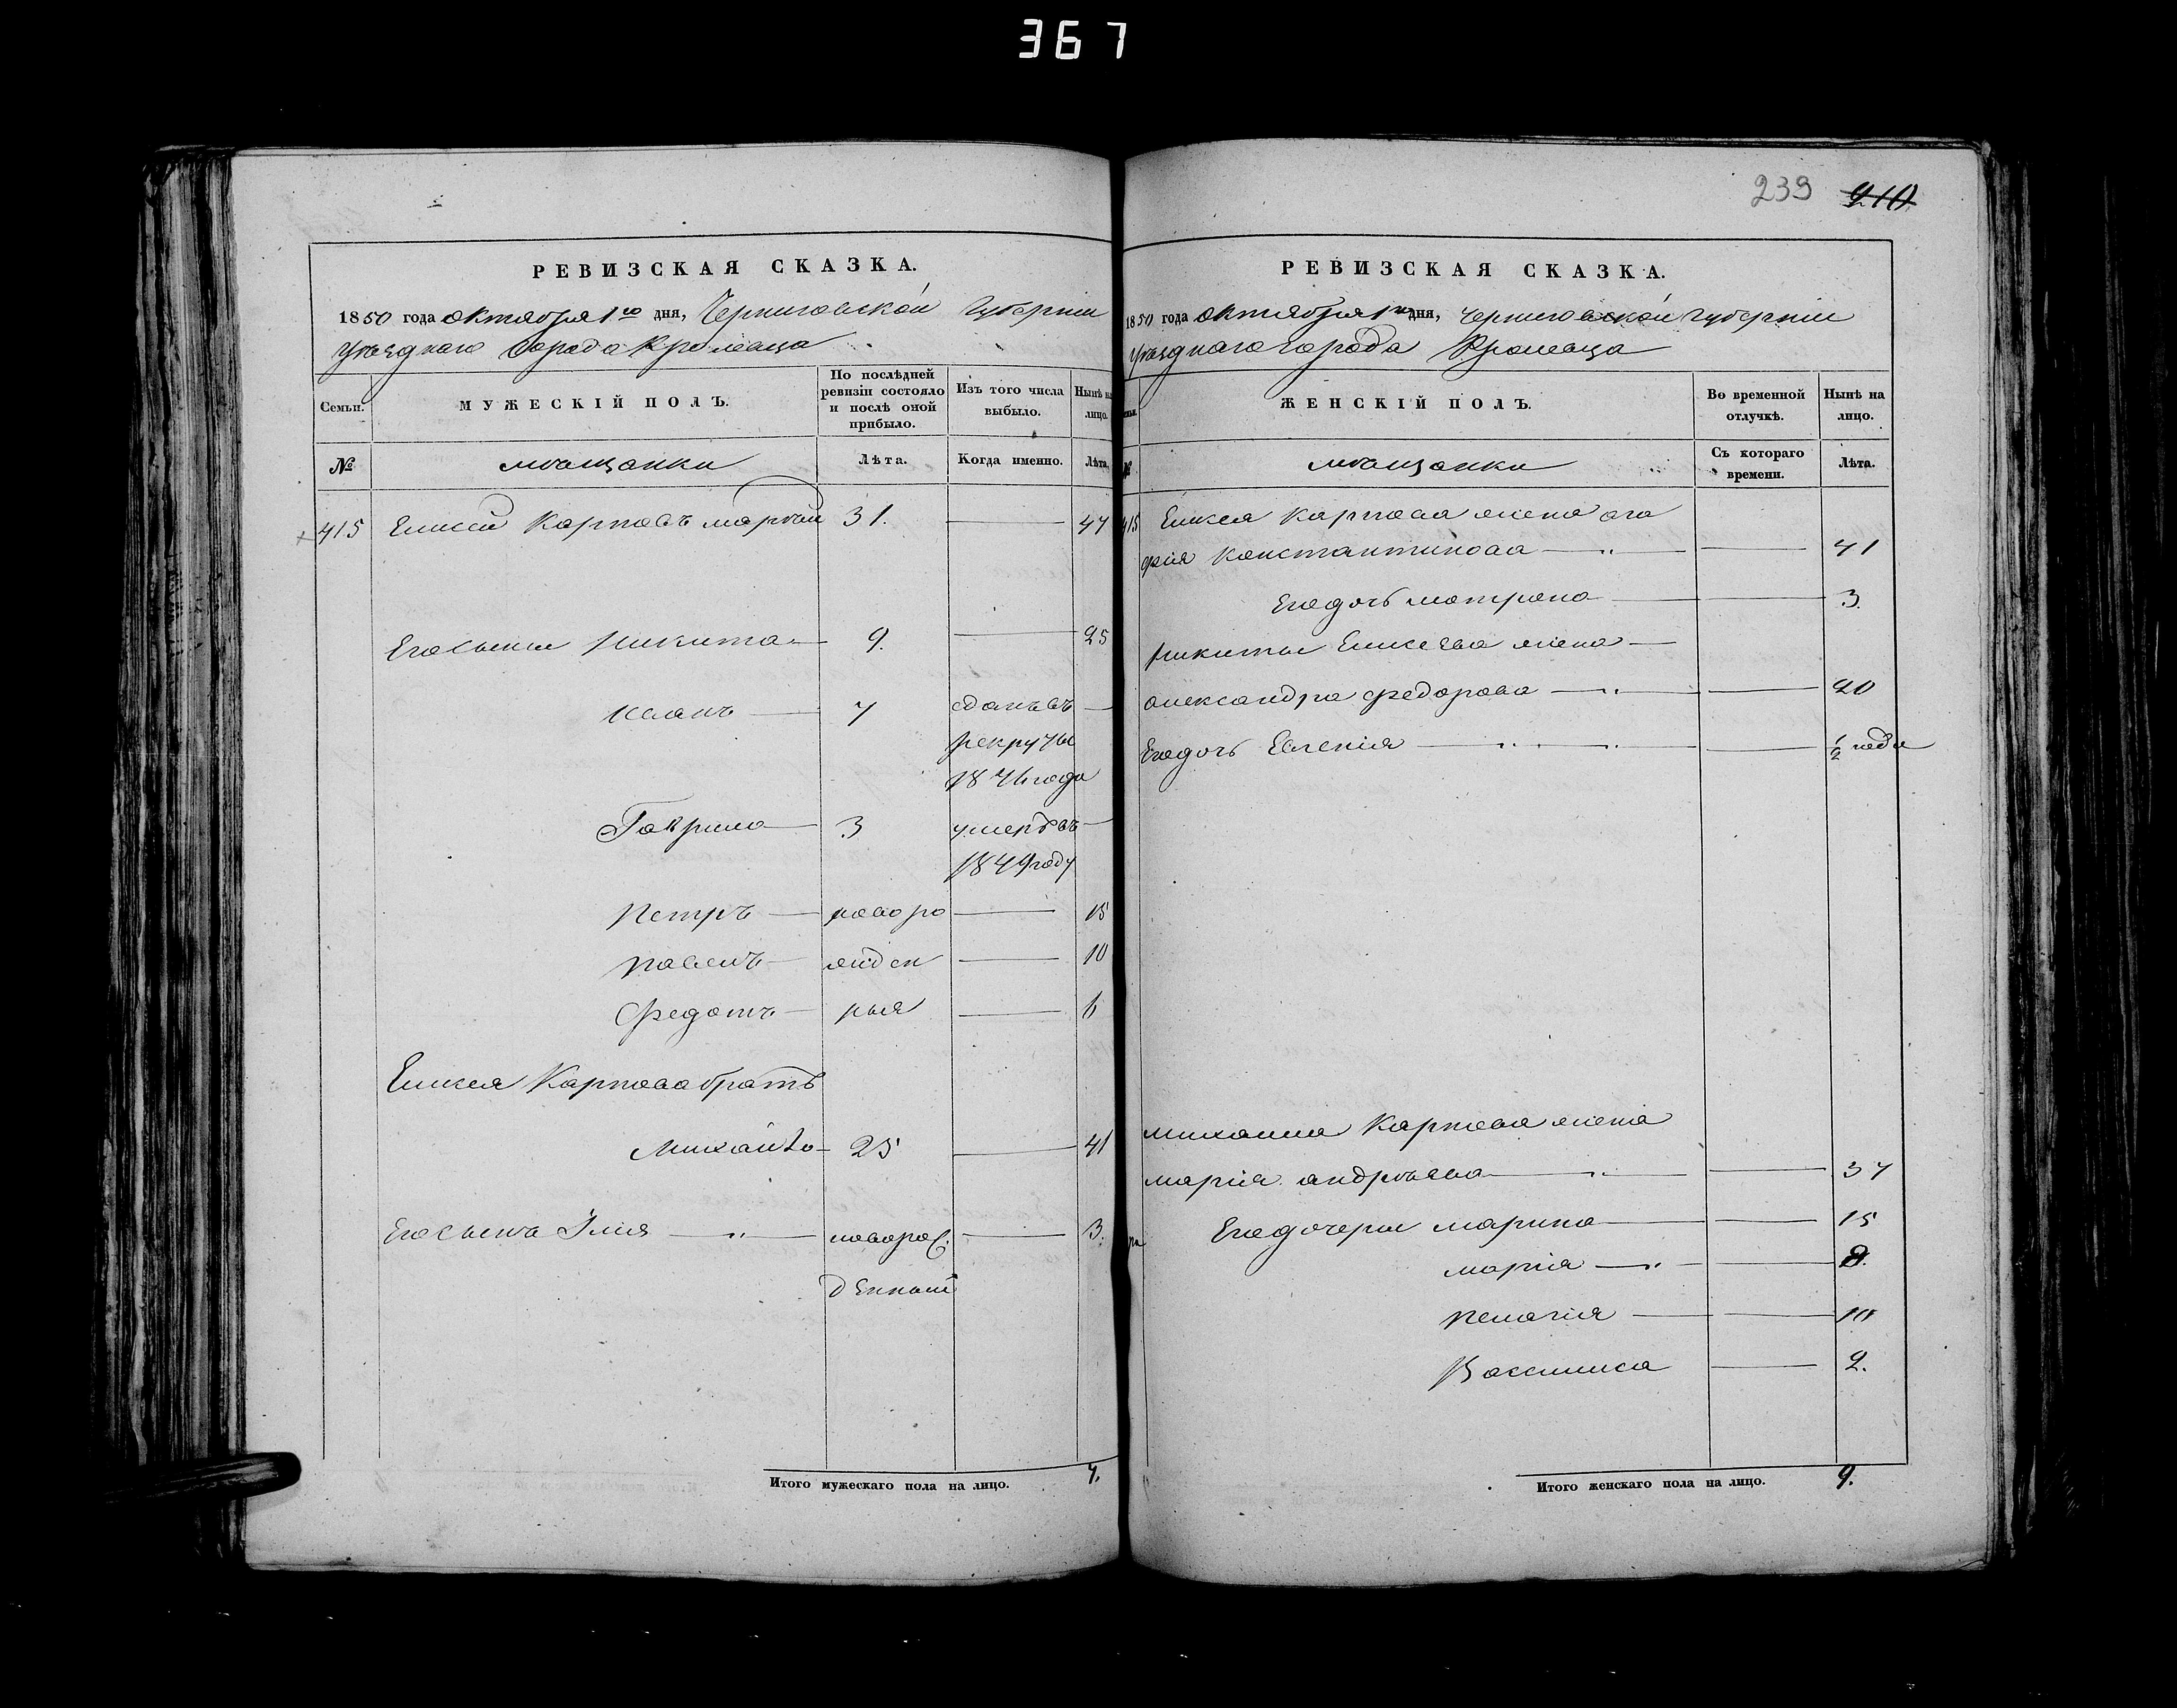 367
239 240
РЕВИЗСКАЯ СКАЗКА.
1850 года октября 1го дня, Черниговской Губернии
уѣзднаго города Кролевца
Семьи. МУЖЕСКІЙ ПОЛЪ. По послѣдней ревизіи состояло и послѣ оной прибыло. Изъ того числа выбыло. Нынѣ на лицо.
№ мѣщанки Лѣта. Когда именно. Лѣта.
415 Елисей Карповъ 31. 47
Его сыны Никита 9. 25
Иванъ 7 сданъ въ
рекруты
1846 года
Гаврило 3 умеръ въ
1849 году
Петръ новоро 15
Павелъ жден 10
Федотъ ныя 6
Елисея Карпова братъ
Михайло 25 41
Его сынъ Илія новорож. 3.
денный
Итого мужескаго пола на лицо. 7.
РЕВИЗСКАЯ СКАЗКА.
1850 года октября 1го дня, Черниговской губерніи
уѣзднаго города Кролевца
ЖЕНСКІЙ ПОЛЪ. Во временной отлучкѣ. Нынѣ на лицо.
№ мѣщанки Съ котораго времени. Лѣта.
415 Елисея Карпова жена ага
фія Константинова 41
Его дочь матрона 3.
Никиты Елисеева жена
александра федорова 20
Его дочь Евгенія ½ года
михаила Карпова жена
марія андрѣева 37
Его дочери марина 15
марія 8.
пелагія 10
Василиса 2.
Итого женскаго пола на лицо. 9.